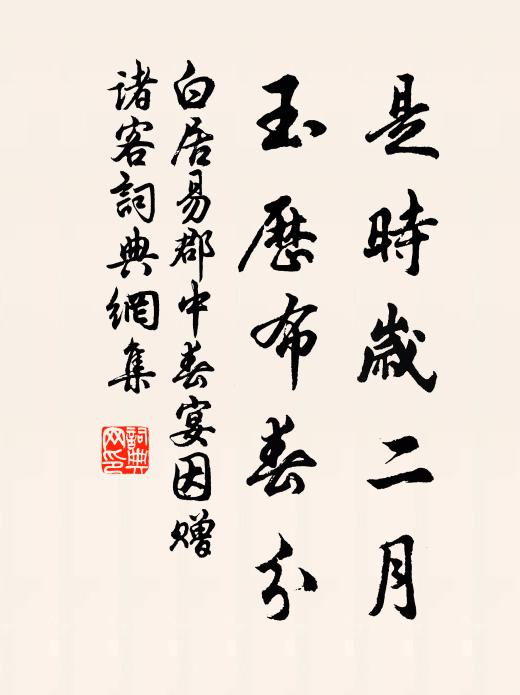 是時歲二月
玉歷布春分
白居易郡中春宴因贈
諸客詞典網集
詞典網印